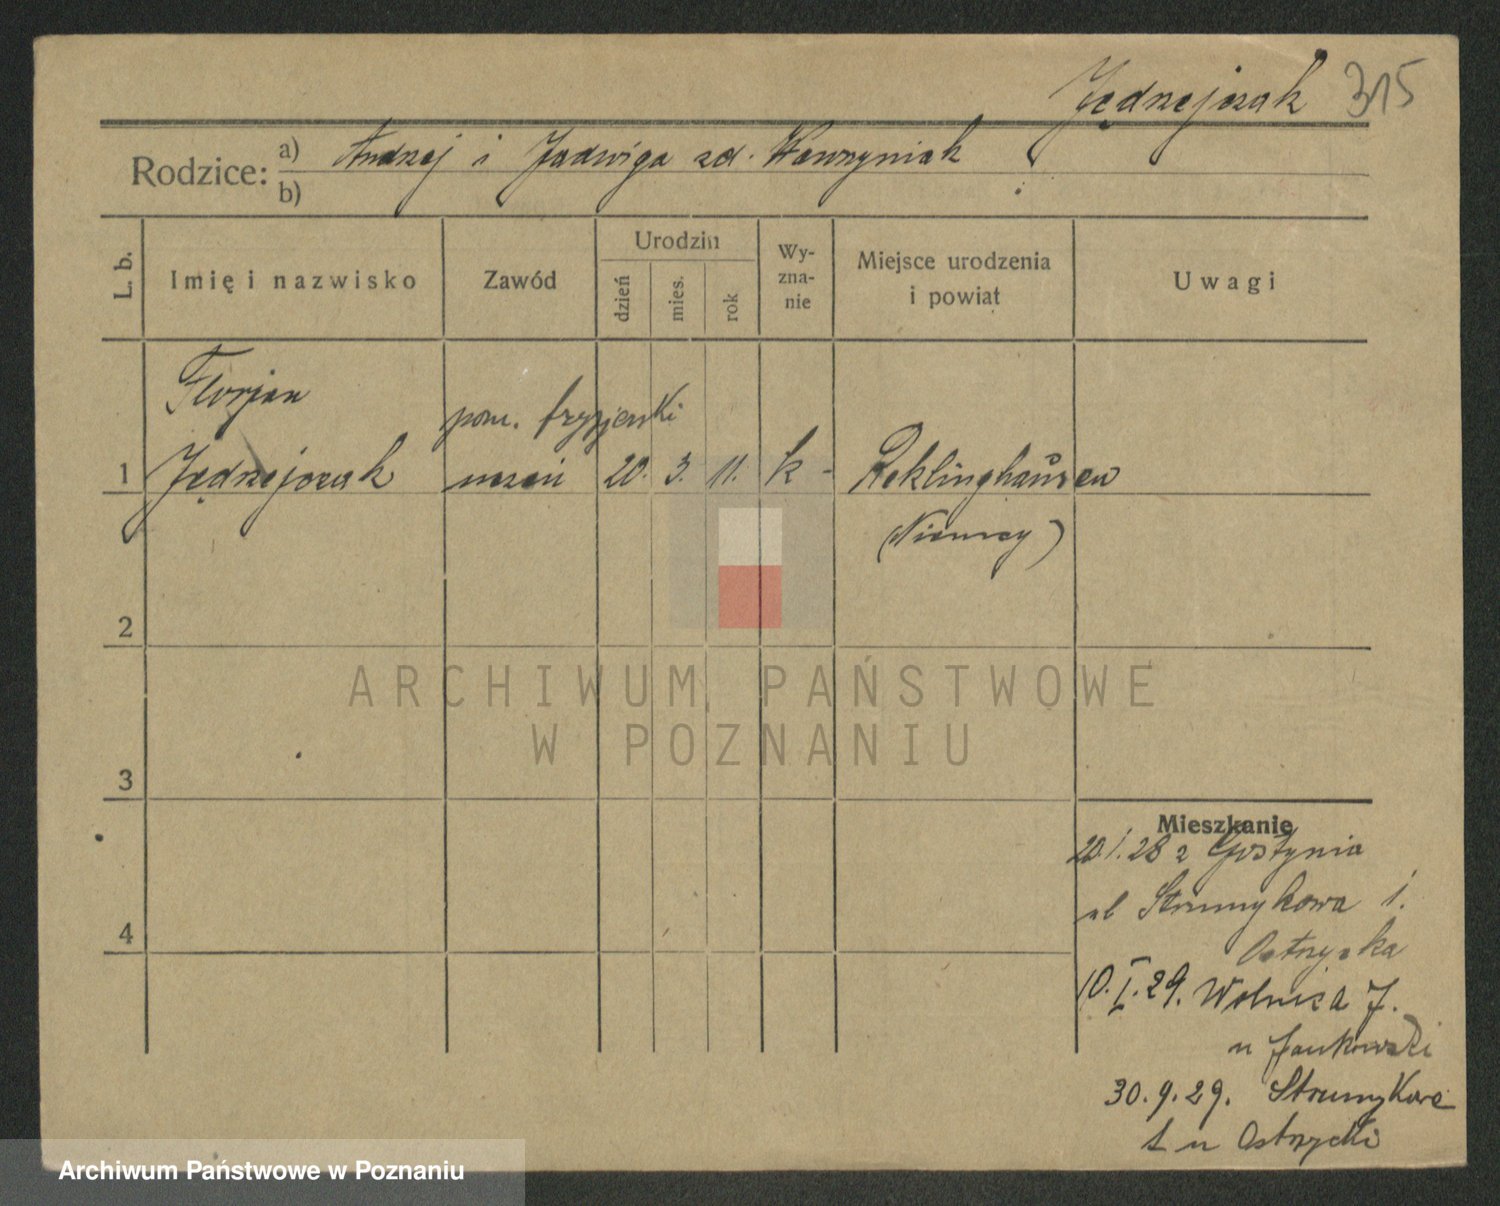 Jędrzejczak 315
Rodzice: a) Andrzej i Jadwiga zd. Wawrzyniak
b)
L. b.
Imię i nazwisko
Zawód
Urodzin
dzień
mies.
rok
Wy-
zna-
nie
Miejsce urodzenia
i powiat
Uwagi
Florjan
pom. fryzjerski
1 Jędrzejczak uczeń 20. 3. 11. k - Reklinghausen
(Niemcy)
2
ARCHIWUM PAŃSTWOWE
W POZNANIU
3
Mieszkanie
20.1.28 z Gostynia
ul Strumykowa 1.
4
Ostrycka
10.I.29. Wolnica 7.
u Jankowski
30.9.29. Strumykowa
1 u Ostrycki
Archiwum Państwowe w Poznaniu